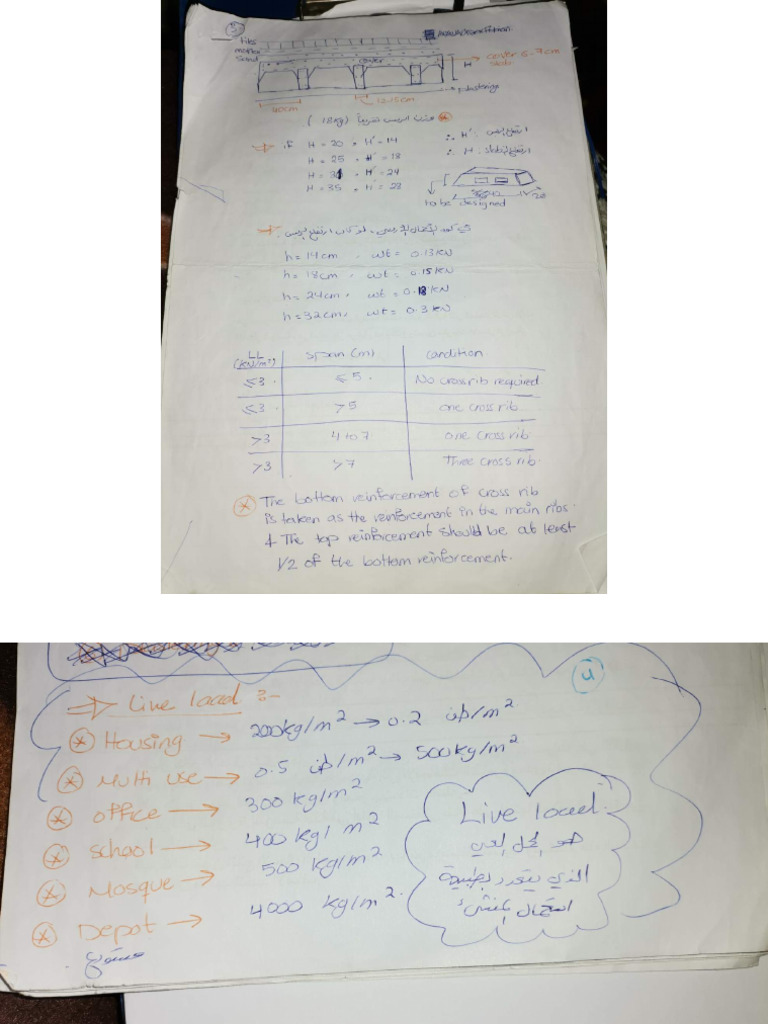 5
tiles
mortar
sand
cover
cover 5-7 cm
slab
H
plastering
40cm
12-15cm
(18kg)
⇒ if H = 20 , H' = 14
∴ H' :
H = 25 , H' = 18
∴ H :
H = 31 , H' = 24
H = 35 , H' = 28
to be designed
20
h = 14cm , wt = 0.13 KN
h = 18cm , wt = 0.15 KN
h = 24cm , wt = 0.18 KN
h = 32cm , wt = 0.3 KN
LL (KN/m²) span (m) condition
≤3 ≤5 No cross rib required
≤3 >5 one cross rib
>3 4 to 7 one cross rib
>3 >7 Three cross rib
The bottom reinforcement of cross rib
is taken as the reinforcement in the main ribs.
& The top reinforcement should be at least
1/2 of the bottom reinforcement.
4
⇒ Live load :-
Housing → 200kg/m² → 0.2 طن/m²
Multi use → 0.5 طن/m² → 500kg/m²
office → 300 kg/m²
school → 400 kg/m²
Mosque → 500 kg/m²
Depot → 4000 kg/m²
مستودع
Live load:
هو الحمل الحي
الذي يتحدد بطبيعة
استعمال المنشئ